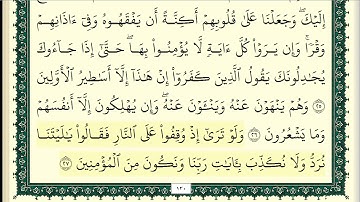 إِلَيْكَ ۖ وَجَعَلْنَا عَلَىٰ قُلُوبِهِمْ أَكِنَّةً أَن يَفْقَهُوهُ وَفِىٓ ءَاذَانِهِمْ
وَقْرًا ۚ وَإِن يَرَوْا۟ كُلَّ ءَايَةٍ لَّا يُؤْمِنُوا۟ بِهَا ۚ حَتَّىٰٓ إِذَا جَآءُوكَ
يُجَٰدِلُونَكَ يَقُولُ ٱلَّذِينَ كَفَرُوٓا۟ إِنْ هَٰذَآ إِلَّآ أَسَٰطِيرُ ٱلْأَوَّلِينَ
٢٥ وَهُمْ يَنْهَوْنَ عَنْهُ وَيَنْـَٔوْنَ عَنْهُ ۖ وَإِن يُهْلِكُونَ إِلَّآ أَنفُسَهُمْ
وَمَا يَشْعُرُونَ ٢٦ وَلَوْ تَرَىٰٓ إِذْ وُقِفُوا۟ عَلَى ٱلنَّارِ فَقَالُوا۟ يَٰلَيْتَنَا
نُرَدُّ وَلَا نُكَذِّبَ بِـَٔايَٰتِ رَبِّنَا وَنَكُونَ مِنَ ٱلْمُؤْمِنِينَ ٢٧
١٣٠